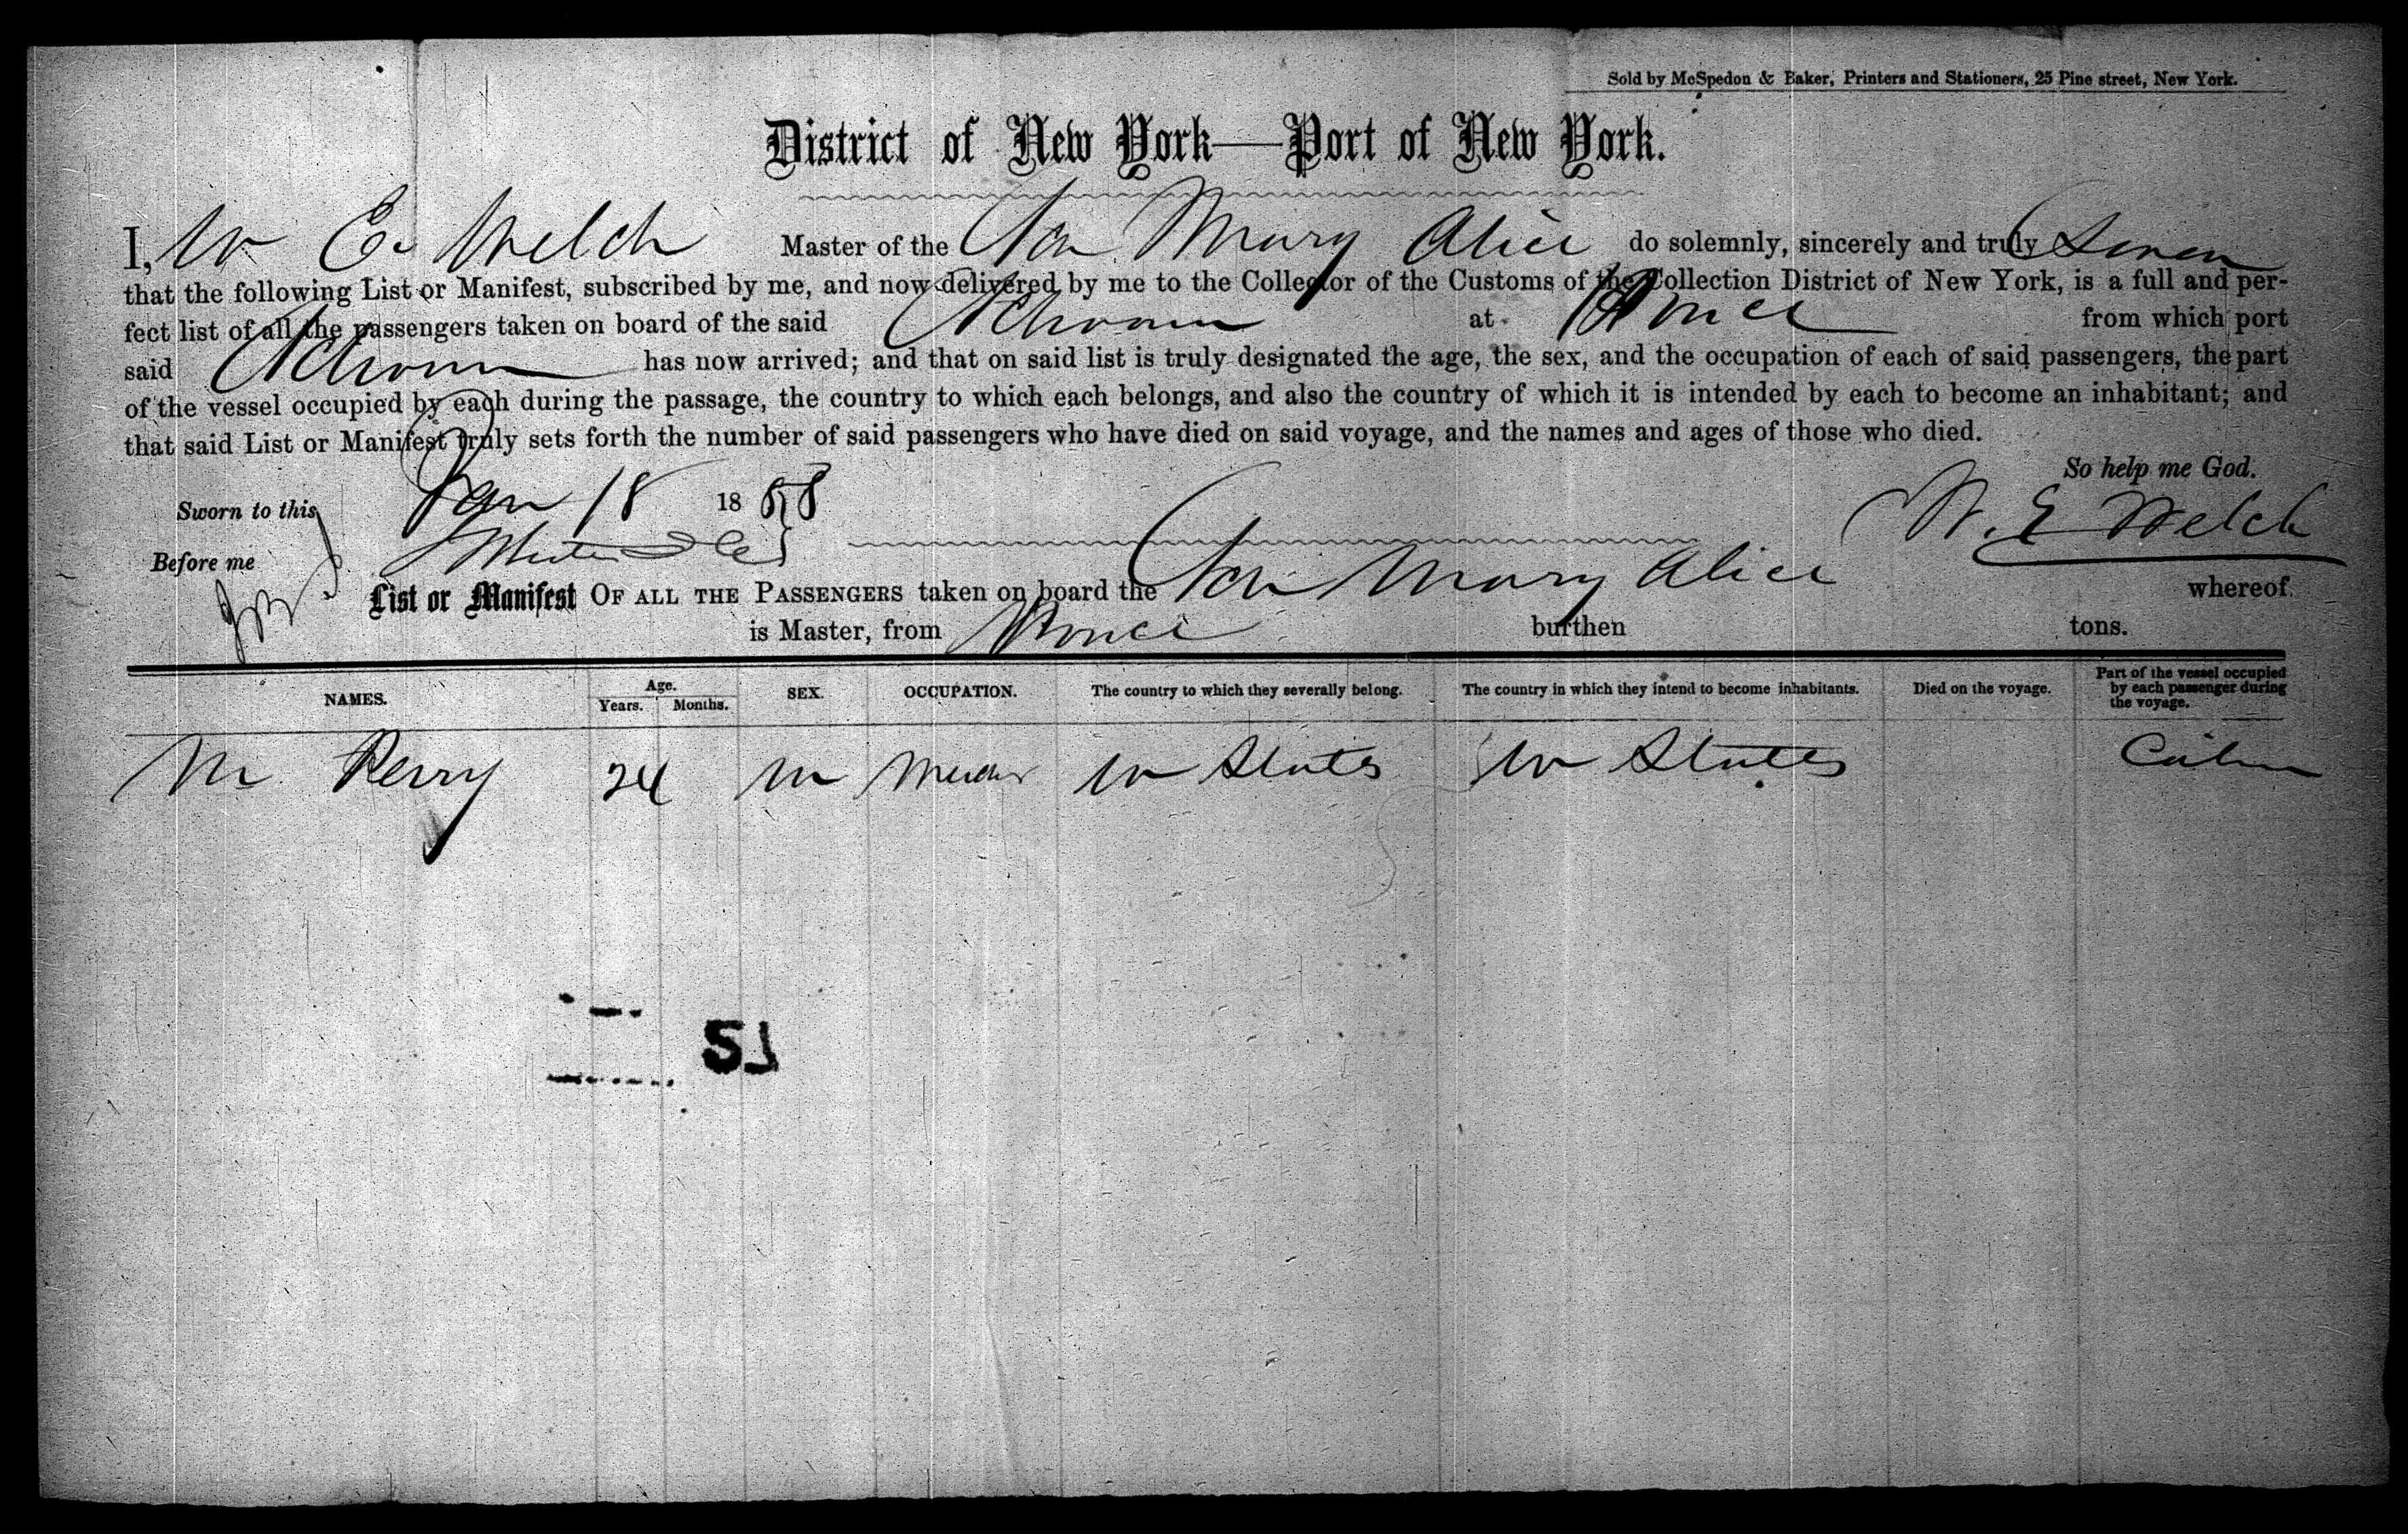 Sold by McSpedon & Baker, Printers and Stationers, 25 Pine street, New York.
District of New York—Port of New York.
I, W E. Welch Master of the Sch. Mary Alice do solemnly, sincerely and truly Swear
that the following List or Manifest, subscribed by me, and now delivered by me to the Collector of the Customs of the Collection District of New York, is a full and per-
fect list of all the passengers taken on board of the said Schooner at Ponce from which port
said Schooner has now arrived; and that on said list is truly designated the age, the sex, and the occupation of each of said passengers, the part
of the vessel occupied by each during the passage, the country to which each belongs, and also the country of which it is intended by each to become an inhabitant; and
that said List or Manifest truly sets forth the number of said passengers who have died on said voyage, and the names and ages of those who died.
So help me God.
Sworn to this Jan 18 18 W. E Welch
Before me
List or Manifest OF ALL THE PASSENGERS taken on board the Sch Mary Alice whereof
is Master, from Ponce burthen tons.
NAMES. Age. Years. Months. SEX. OCCUPATION. The country to which they severally belong. The country in which they intend to become inhabitants. Died on the voyage. Part of the vessel occupied by each passenger during the voyage.
M Perry 24 M U States U States Cabin
51